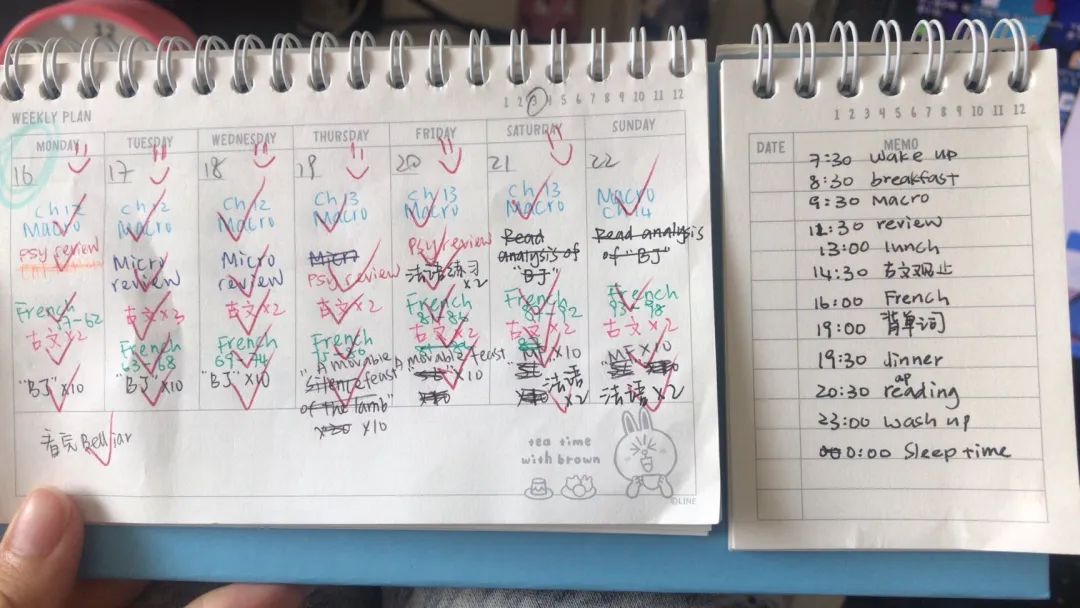 WEEKLY PLAN
1 2 3 4 5 6 7 8 9 10 11 12
MONDAY
16
Ch 12
Macro
Psy review
French
57-62
古文×2
"BJ"×10
TUESDAY
17
Ch 12
Macro
Micro
review
古文×3
French
63-68
"BJ"×10
WEDNESDAY
18
Ch 12
Macro
Micro
review
古文×2
French
69-74
"BJ"×10
THURSDAY
19
Ch 13
Macro
Micro
Psy review
古文×2
French
"A movable
Silence feast
of the lamb"
×10
FRIDAY
20
Ch 13
Macro
Psy review
法语练习
×2
French
81-86
古文×2
A movable feast
×10
SATURDAY
21
Ch 13
Macro
Read
analysis of
"BJ"
French
87-92
古文×2
"MF"×10
法语
×2
SUNDAY
22
Macro
Ch 14
Read analysis
of "BJ"
French
93-98
古文×2
"MF"×10
法语×2
看完Bell jar
tea time
with brown
©LINE
1 2 3 4 5 6 7 8 9 10 11 12
DATE MEMO
7:30 wake up
8:30 breakfast
9:30 Macro
11:30 review
13:00 lunch
14:30 古文观止
16:00 French
19:00 背单词
19:30 dinner
20:30 reading
23:00 wash up
0:00 Sleep time